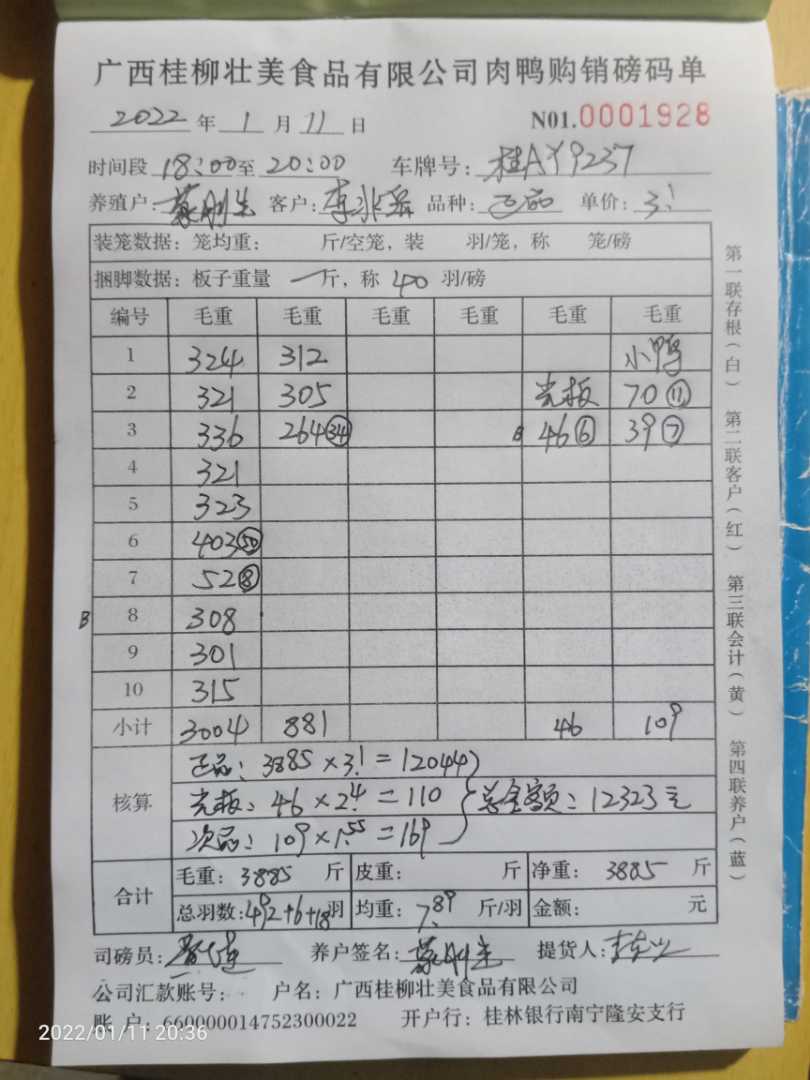 广西桂柳壮美食品有限公司肉鸭购销磅码单
2022 年 1 月 11 日 N01.0001928
时间段 18:00至 20:00 车牌号: 桂AY9237
养殖户: 客户: 李 品种: 正品 单价: 3.1
装笼数据: 笼均重: 斤/空笼, 装 羽/笼, 称 笼/磅
捆脚数据: 板子重量 一 斤, 称 40 羽/磅
编号 毛重 毛重 毛重 毛重 毛重 毛重
1 324 312 小鸭
2 321 305 光板 70 ⑪
3 336 264 ㉞ B 46 ⑥ 39 ⑦
4 321
5 323
6 403 ㊿
7 52 ⑧
B 8 308
9 301
10 315
小计 3004 881 46 109
核算
正品: 3885 × 3.1 = 12044
光板: 46 × 2.4 = 110 总金额: 12323元
次品: 109 × 1.55 = 169
合计
毛重: 3885 斤 皮重: 斤 净重: 3885 斤
总羽数: 492+6+18 羽 均重: 7.89 斤/羽 金额: 元
司磅员: 养户签名: 提货人:
公司汇款账号: 户名: 广西桂柳壮美食品有限公司
账 户: 660000014752300022 开户行: 桂林银行南宁隆安支行
第一联存根(白) 第二联客户(红) 第三联会计(黄) 第四联养户(蓝)
2022/01/11 20:36